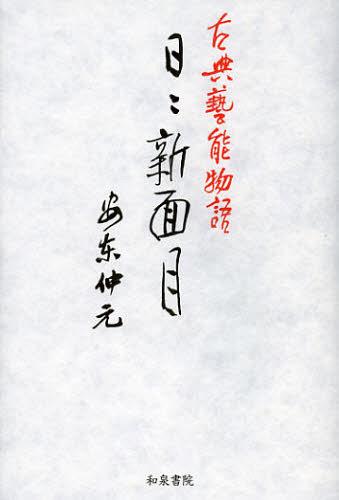 古典藝能物語
日〻新面目
安东伸元
和泉書院